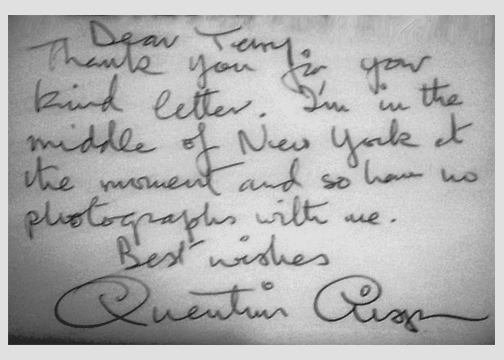 Dear Terry,
Thank you for your
kind letter. I'm in the
middle of New York at
the moment and so have no
photographs with me.
Best wishes
Quentin Crisp